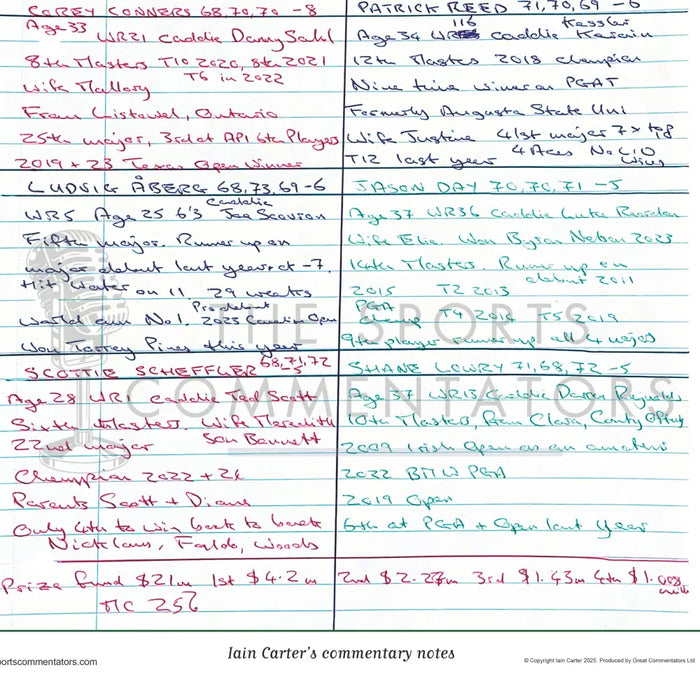 COREY CONNERS 68,70,70 -8
Age 33 WR21 Caddie Danny Sahl
8th Masters T10 2020, 8th 2021
T6 in 2022
Wife Mallory
From Listowel, Ontario
25th major, 3rd at API 6th Players
2019 + 23 Texas Open Winner
PATRICK REED 71,70,69 -6
Age 34 WR 116 caddie Kessler Karain
12th Masters 2018 Champion
Nine time winner on PGAT
Formerly Augusta State Uni
Wife Justine 41st major 7x top
T12 last year 4 Aces No LIV
wins
LUDVIG ÅBERG 68,73,69 -6
WR5 Age 25 6'3 Caddie Joe Skovron
Fifth major. Runner up on
major debut last year at -7.
Hit water on 11. 29 weeks
world am No 1. Pro debut 2023 Canadian Open
Won Torrey Pines this year
JASON DAY 70,70,71 -5
Age 37 WR36 Caddie Luke Reardon
Wife Ellie. Won Byron Nelson 2023
14th Masters. Runner up on
debut 2011
2015 T2 2013
PGA
Champ T4 2016 T5 2019
9th player runner up all 4 majors
SCOTTIE SCHEFFLER 68,71,72
-5
Age 28 WR1 caddie Ted Scott
Sixth Masters. Wife Meredith
22nd major Son Bennett
Champion 2022 + 24
Parents Scott + Diane
Only 4th to win back to back
Nicklaus, Faldo, Woods
SHANE LOWRY 71,68,72 -5
Age 37 WR13 Caddie Darren Reynolds
10th Masters, from Clara, County Offaly
2009 Irish Open as an amateur
2022 BMW PGA
2019 Open
6th at PGA + Open last year
Prize fund $21m 1st $4.2m 2nd $2.27m 3rd $1.43m 4th $1.008
mill
MC 256
THE SPORTS
COMMENTATORS
Iain Carter's commentary notes
ortscommentators.com
© Copyright Iain Carter 2025. Produced by Great Commentators Ltd